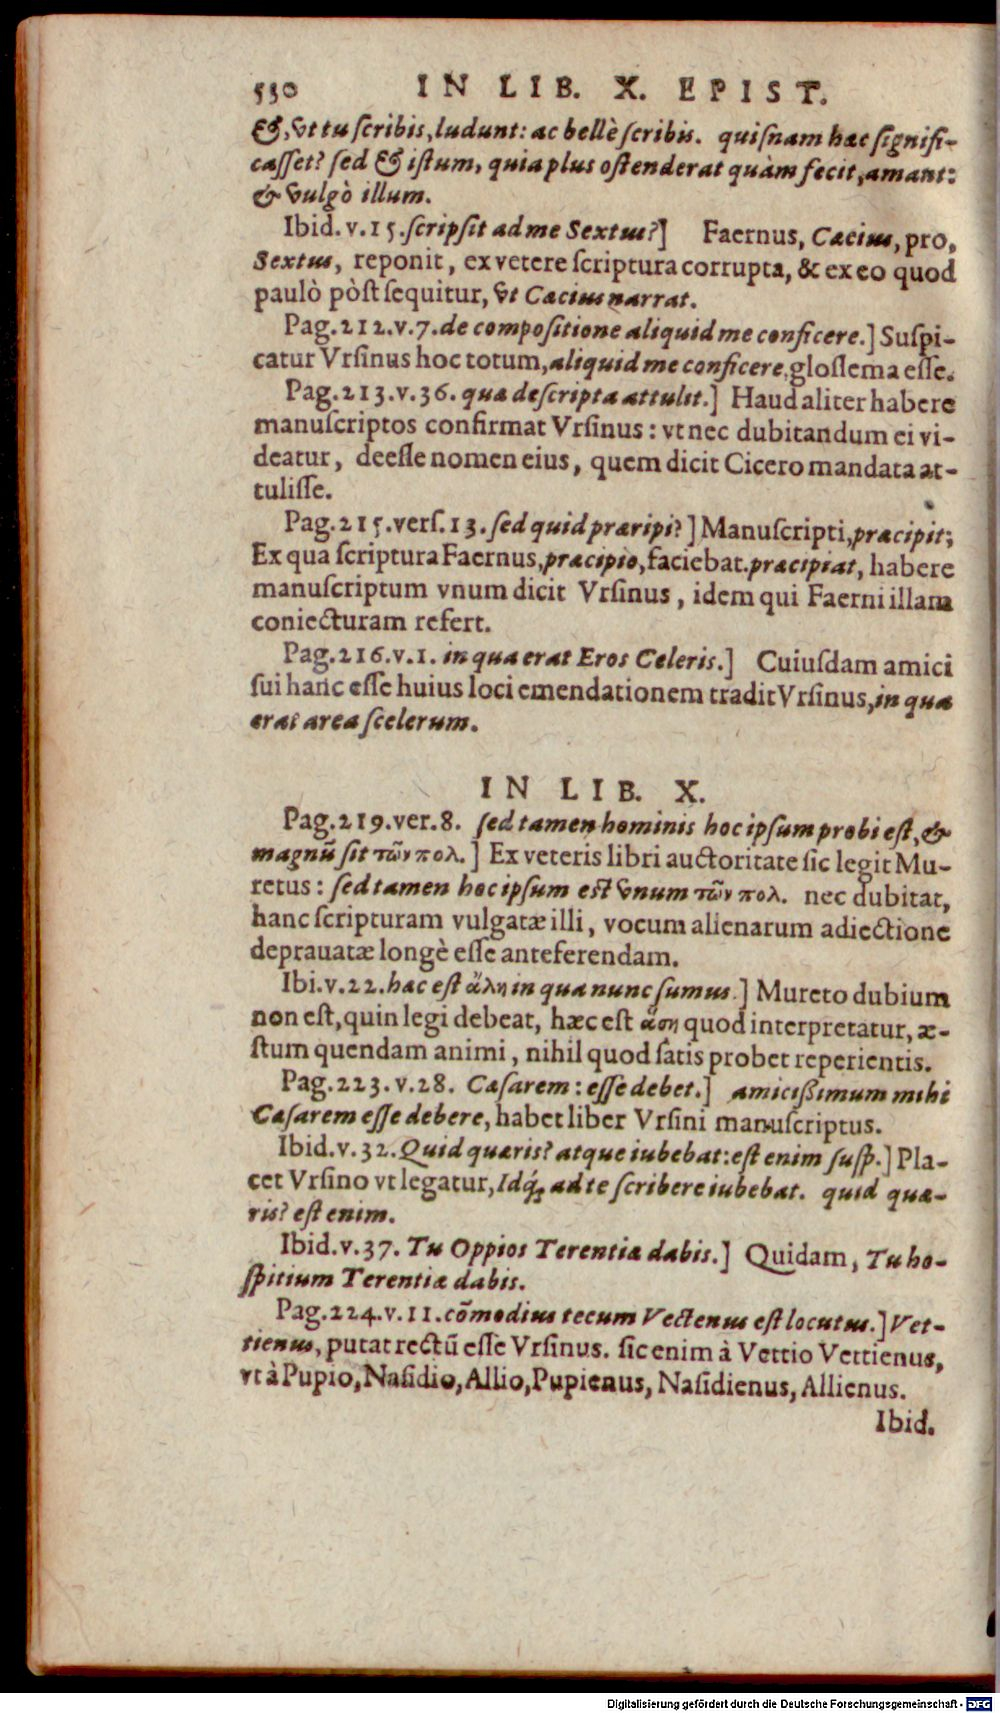 530 IN LIB. X. EPIST.
&, vt tu ſcribis, ludunt: ac bellè ſcribis. quiſnam hæc ſignifi-
caſſet? ſed & iſtum, quia plus oſtenderat quàm fecit, amant:
& vulgò illum.
Ibid. v. 15. ſcripſit ad me Sextus?] Faernus, Cæcius, pro,
Sextus, reponit, ex vetere ſcriptura corrupta, & ex eo quod
paulò pòſt ſequitur, vt Cæcius narrat.
Pag. 212. v. 7. de compoſitione aliquid me conficere.] Suſpi-
catur Vrſinus hoc totum, aliquid me conficere, gloſſema eſſe.
Pag. 213. v. 36. quæ deſcripta attulit.] Haud aliter habere
manuſcriptos confirmat Vrſinus: vt nec dubitandum ei vi-
deatur, deeſſe nomen eius, quem dicit Cicero mandata at-
tuliſſe.
Pag. 215. verſ. 13. ſed quid præripi?] Manuſcripti, præcipit;
Ex qua ſcriptura Faernus, præcipio, faciebat. præcipiat, habere
manuſcriptum vnum dicit Vrſinus, idem qui Faerni illam
coniecturam refert.
Pag. 216. v. 1. in qua erat Eros Celeris.] Cuiuſdam amici
ſui hanc eſſe huius loci emendationem tradit Vrſinus, in qua
erat area ſcelerum.
IN LIB. X.
Pag. 219. ver. 8. ſed tamen hominis hoc ipſum probi eſt, &
magnū ſit τῶν πολ.] Ex veteris libri auctoritate ſic legit Mu-
retus: ſed tamen hoc ipſum eſt vnum τῶν πολ. nec dubitat,
hanc ſcripturam vulgatæ illi, vocum alienarum adiectione
deprauatæ longè eſſe anteferendam.
Ibi. v. 22. hæc eſt ἄλη in qua nunc ſumus.] Mureto dubium
non eſt, quin legi debeat, hæc eſt ἄση quod interpretatur, æ-
ſtum quendam animi, nihil quod ſatis probet reperientis.
Pag. 223. v. 28. Cæſarem: eſſe debet.] amicißimum mihi
Cæſarem eſſe debere, habet liber Vrſini manuſcriptus.
Ibid. v. 32. Quid quæris? atque iubebat: eſt enim ſuſp.] Pla-
cet Vrſino vt legatur, Idq́; ad te ſcribere iubebat. quid quæ-
ris? eſt enim.
Ibid. v. 37. Tu Oppios Terentiæ dabis.] Quidam, Tu ho-
ſpitium Terentiæ dabis.
Pag. 224. v. 11. cōmodius tecum Vectenus eſt locutus.] Vet-
tienus, putat rectū eſſe Vrſinus. ſic enim à Vettio Vettienus,
vt à Pupio, Naſidio, Allio, Pupienus, Naſidienus, Allienus.
Ibid.
Digitalisierung gefördert durch die Deutsche Forschungsgemeinschaft - DFG